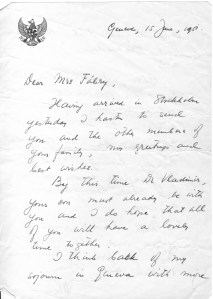 Geneva, 15 June, 1951
Dear Mrs Fabry,
Having arrived in Stockholm
yesterday I hasten to send
you and the other members of
your family, my greetings and
best wishes.
By this time Dr Vladimir,
your son must already be with
you and I do hope that all
of you will have a lovely
time together.
I think back of my
sojourn in Geneva with more